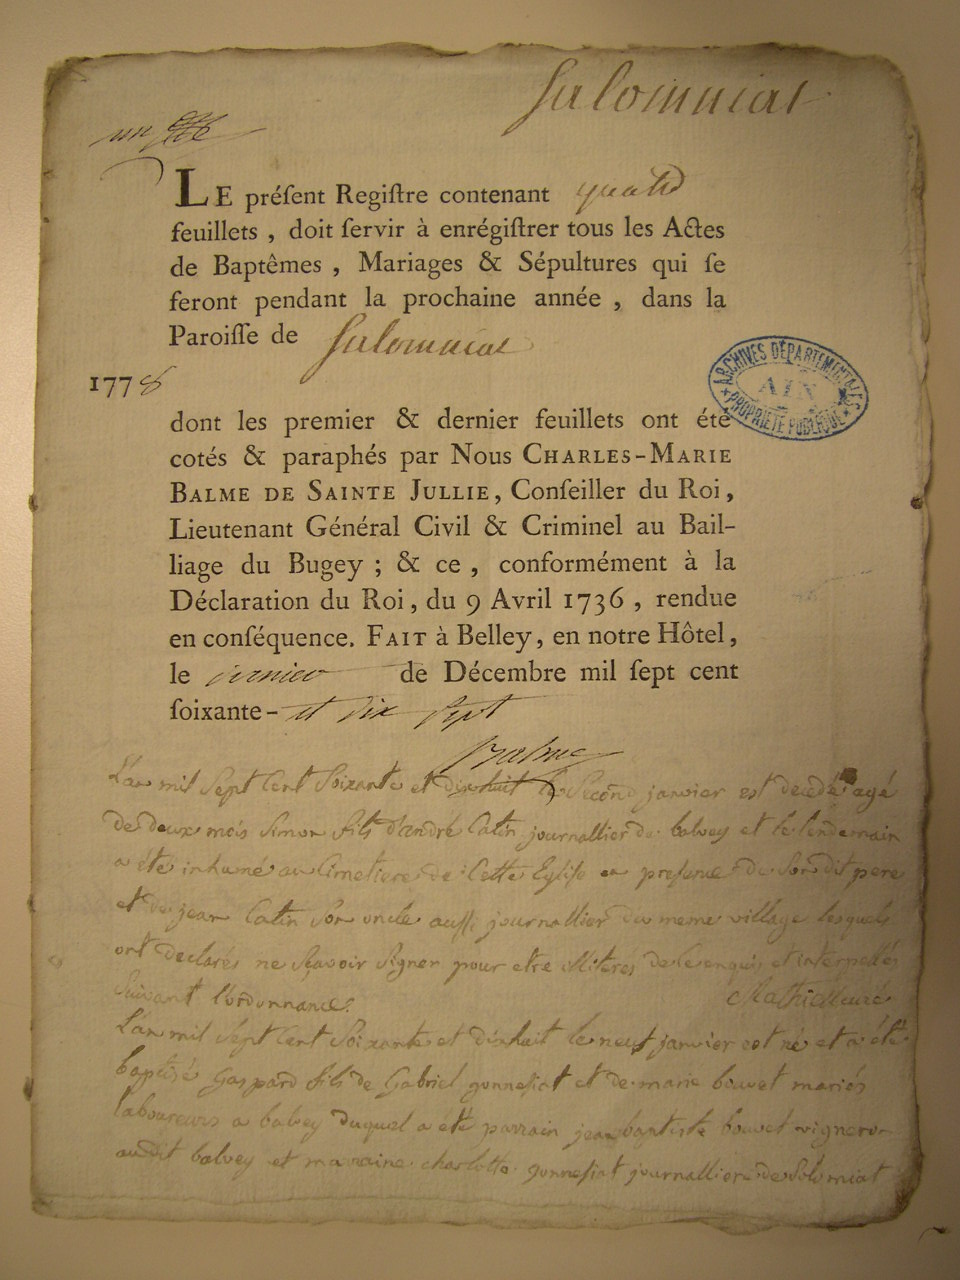 Salomniat
un
LE préſent Regiſtre contenant quatre
feuillets , doit ſervir à enrégiſtrer tous les Actes
de Baptêmes , Mariages & Sépultures qui ſe
feront pendant la prochaine année , dans la
Paroiſſe de Salomniat
1778
ARCHIVES DÉPARTEMENTALES
AIN
PROPRIÉTÉ PUBLIQUE
dont les premier & dernier feuillets ont été
cotés & paraphés par Nous CHARLES-MARIE
BALME DE SAINTE JULLIE, Conſeiller du Roi,
Lieutenant Général Civil & Criminel au Bail-
liage du Bugey ; & ce , conformément à la
Déclaration du Roi, du 9 Avril 1736 , rendue
en conſéquence. FAIT à Belley, en notre Hôtel,
le premier de Décembre mil ſept cent
ſoixante- et dix sept
Balme
L'an mil sept cent soixante et dixhuit le second janvier est decedé agé
de deux mois simon fils d'andré Catin journallier de balvey et le lendemain
a été inhumé au Cimetiere de Cette Eglise en presence de son dit pere
et de jean Catin son oncle aussi journallier du meme village lesquels
ont declarés ne scavoir signer pour etre illiterés de ce enquis et interpellés
suivant l'ordonnance.
L'an mil sept cent soixante et dixhuit le neuf janvier est né et a été
baptisé Gaspard fils de Gabriel gonnessiat et de marie bouvet mariés
laboureurs a balvey duquel a été parrain jean baptiste bouvet vigneron
audit balvey et maraine charlotte gonnessiat journalliere de solomiat